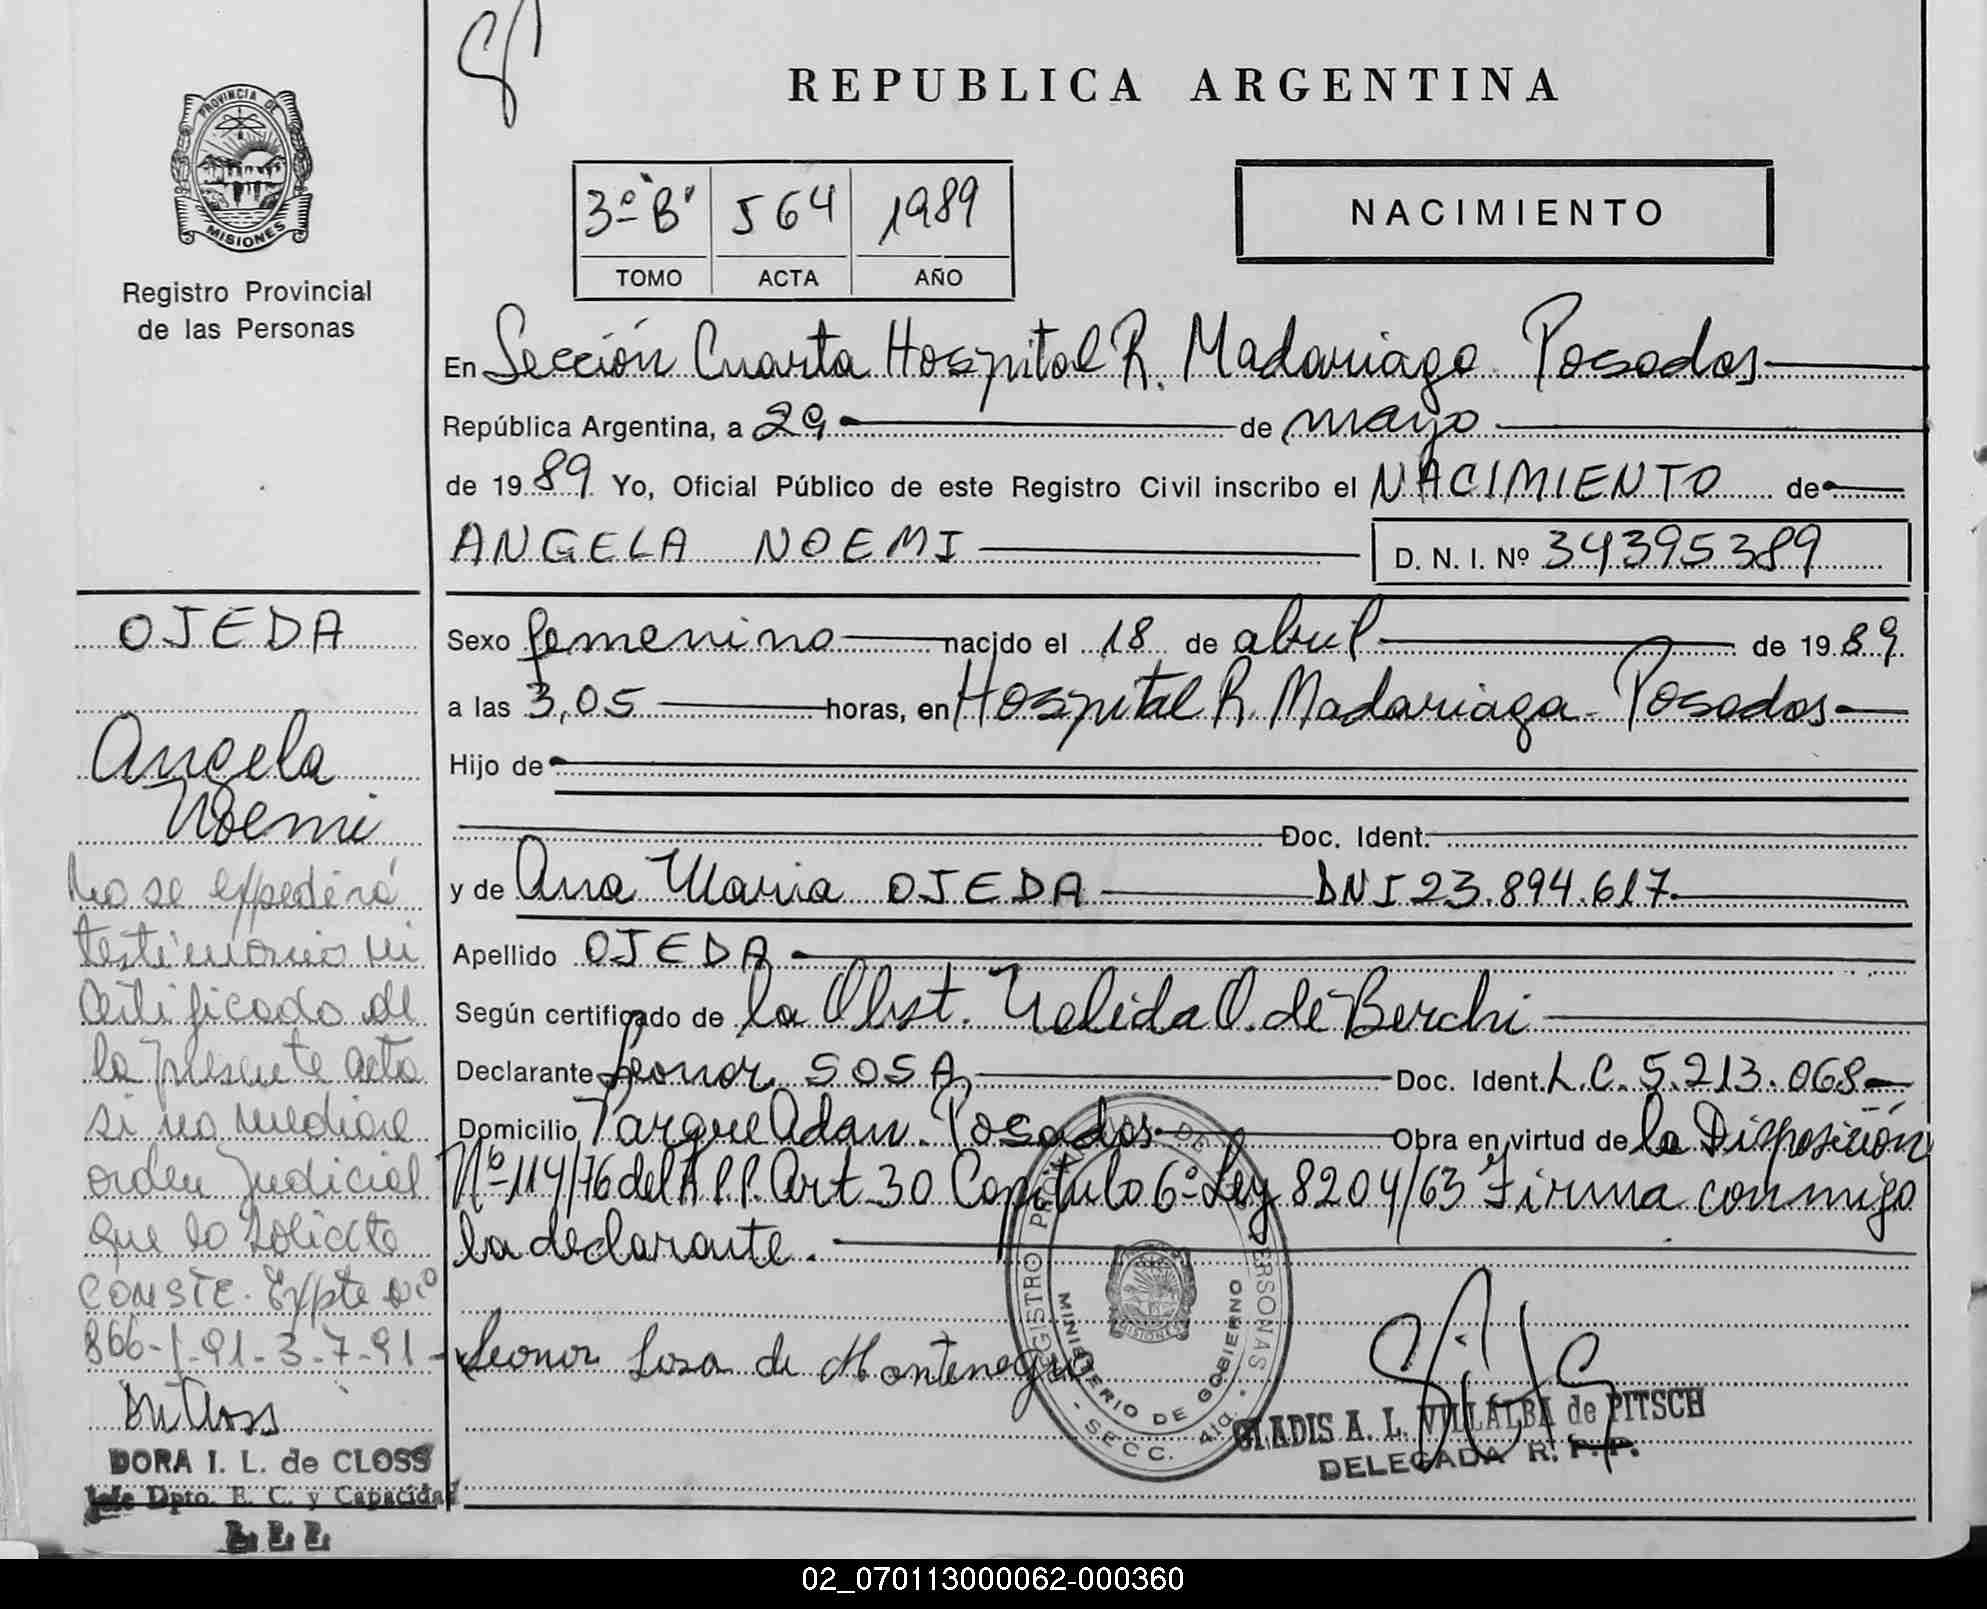 REPUBLICA ARGENTINA
PROVINCIA DE
MISIONES
Registro Provincial
de las Personas
3º "B" 564 1989
TOMO ACTA AÑO
NACIMIENTO
En Sección Cuarta Hospital R. Madariaga Posadas
República Argentina, a 29 de mayo
de 1989 Yo, Oficial Público de este Registro Civil inscribo el NACIMIENTO de
ANGELA NOEMI D. N. I. Nº 34395389
Sexo femenino nacido el 18 de abril de 1989
a las 3,05 horas, en Hospital R. Madariaga - Posadas
Hijo de
Doc. Ident.
y de Ana Maria OJEDA DNI 23.894.617
Apellido OJEDA
Según certificado de la Obst. Nelida O. de Berchi
Declarante Leonor SOSA, Doc. Ident. L.C. 5.213.068
Domicilio Parque Adan - Posadas Obra en virtud de la Disposición
Nº 114/76 del R.P.P. Art. 30 Capitulo 6º Ley 8204/63 Firma conmigo
la declarante.
Leonor Sosa de Montenegro
REGISTRO PROVINCIAL DE LAS PERSONAS
MINISTERIO DE GOBIERNO
MISIONES
- SECC. 4ta. -
GLADIS A. L. VILLALBA de PITSCH
DELEGADA R. P. P.
OJEDA
Angela
Noemi
No se expedirá
testimonio ni
Certificado de
la presente acta
si no mediare
orden Judicial
que lo solicite
CONSTE. Expte Nº
866-J-91-3-7-91-
DORA I. L. de CLOSS
Jefe Dpto. E. C. y Capacidad
02_070113000062-000360